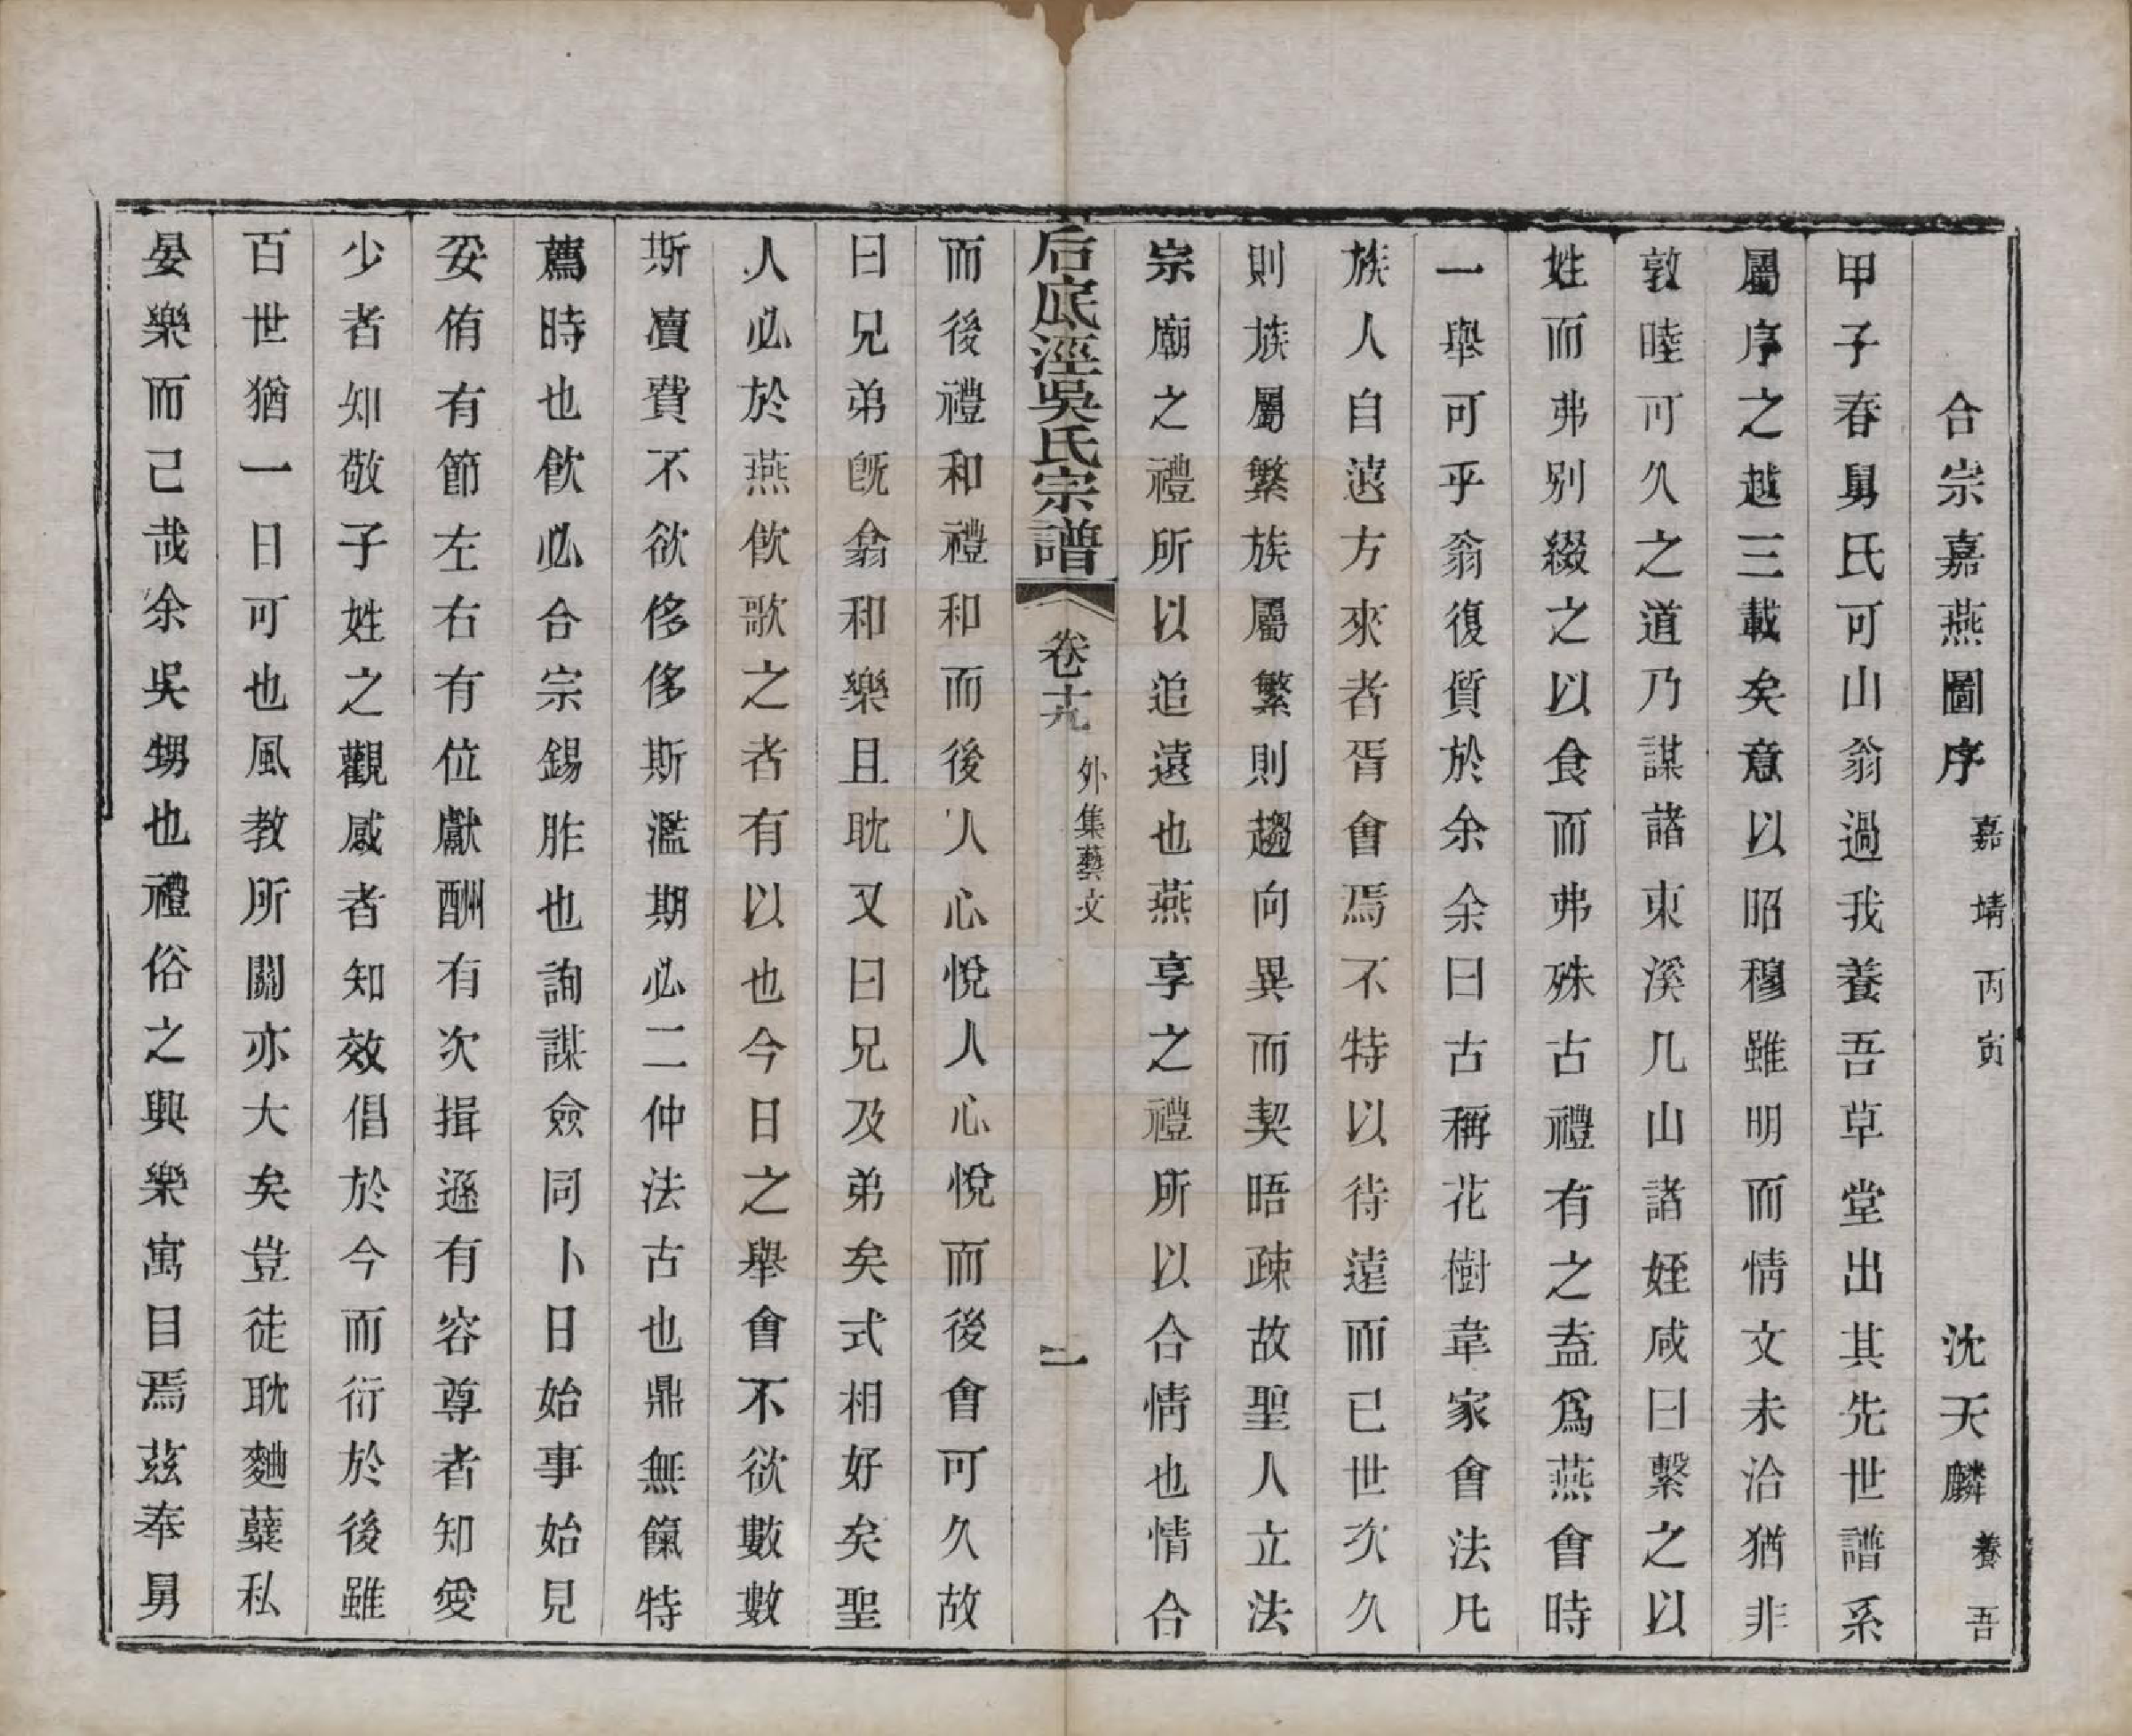 合宗嘉燕圖序 嘉靖丙寅 沈天麟 養吾
甲子春舅氏可山翁過我養吾草堂出其先世譜系
屬序之越三載矣意以昭穆雖明而情文未洽猶非
敦睦可久之道乃謀諸東溪几山諸姪咸曰繫之以
姓而弗別綴之以食而弗殊古禮有之盍爲燕會時
一舉可乎翁復質於余余曰古稱花樹韋家會法凡
族人自遠方來者胥會焉不特以待遠而已世次久
則族屬繁族屬繁則趨向異而契晤疎故聖人立法
宗廟之禮所以追遠也燕享之禮所以合情也情合
后底涇吳氏宗譜 卷十九 外集藝文 二
而後禮和禮和而後人心悅人心悅而後會可久故
曰兄弟旣翕和樂且耽又曰兄及弟矣式相好矣聖
人必於燕飲歌之者有以也今日之舉會不欲數數
斯瀆費不欲侈侈斯濫期必二仲法古也鼎無餼特
薦時也飲必合宗錫胙也詢謀僉同卜日始事始見
妥侑有節左右有位獻酬有次揖遜有容尊者知愛
少者知敬子姓之觀感者知效倡於今而衍於後雖
百世猶一日可也風教所關亦大矣豈徒耽麯櫱私
晏樂而己哉余吳甥也禮俗之興樂寓目焉茲奉舅